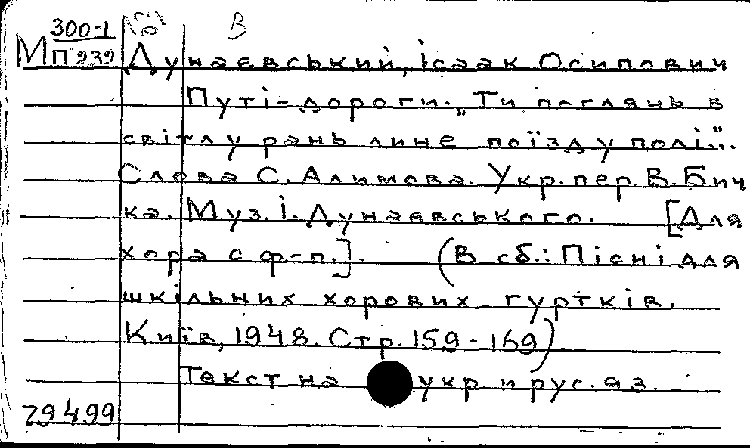 300-1 В
М П939 Дунаєвський, Ісаак Осипович
Путі-дороги. „Ти поглянь в
світлу рань лине поїзд у полі...".
Слова С. Алимова. Укр. пер. В. Бич
ка. Муз. І. Дунаєвського. [Для
хора с ф-п.]. (В сб.: Пісні для
шкільних хорових гуртків.
Київ, 1948. Стр. 159-169)
Текст на укр. и рус. яз.
79499